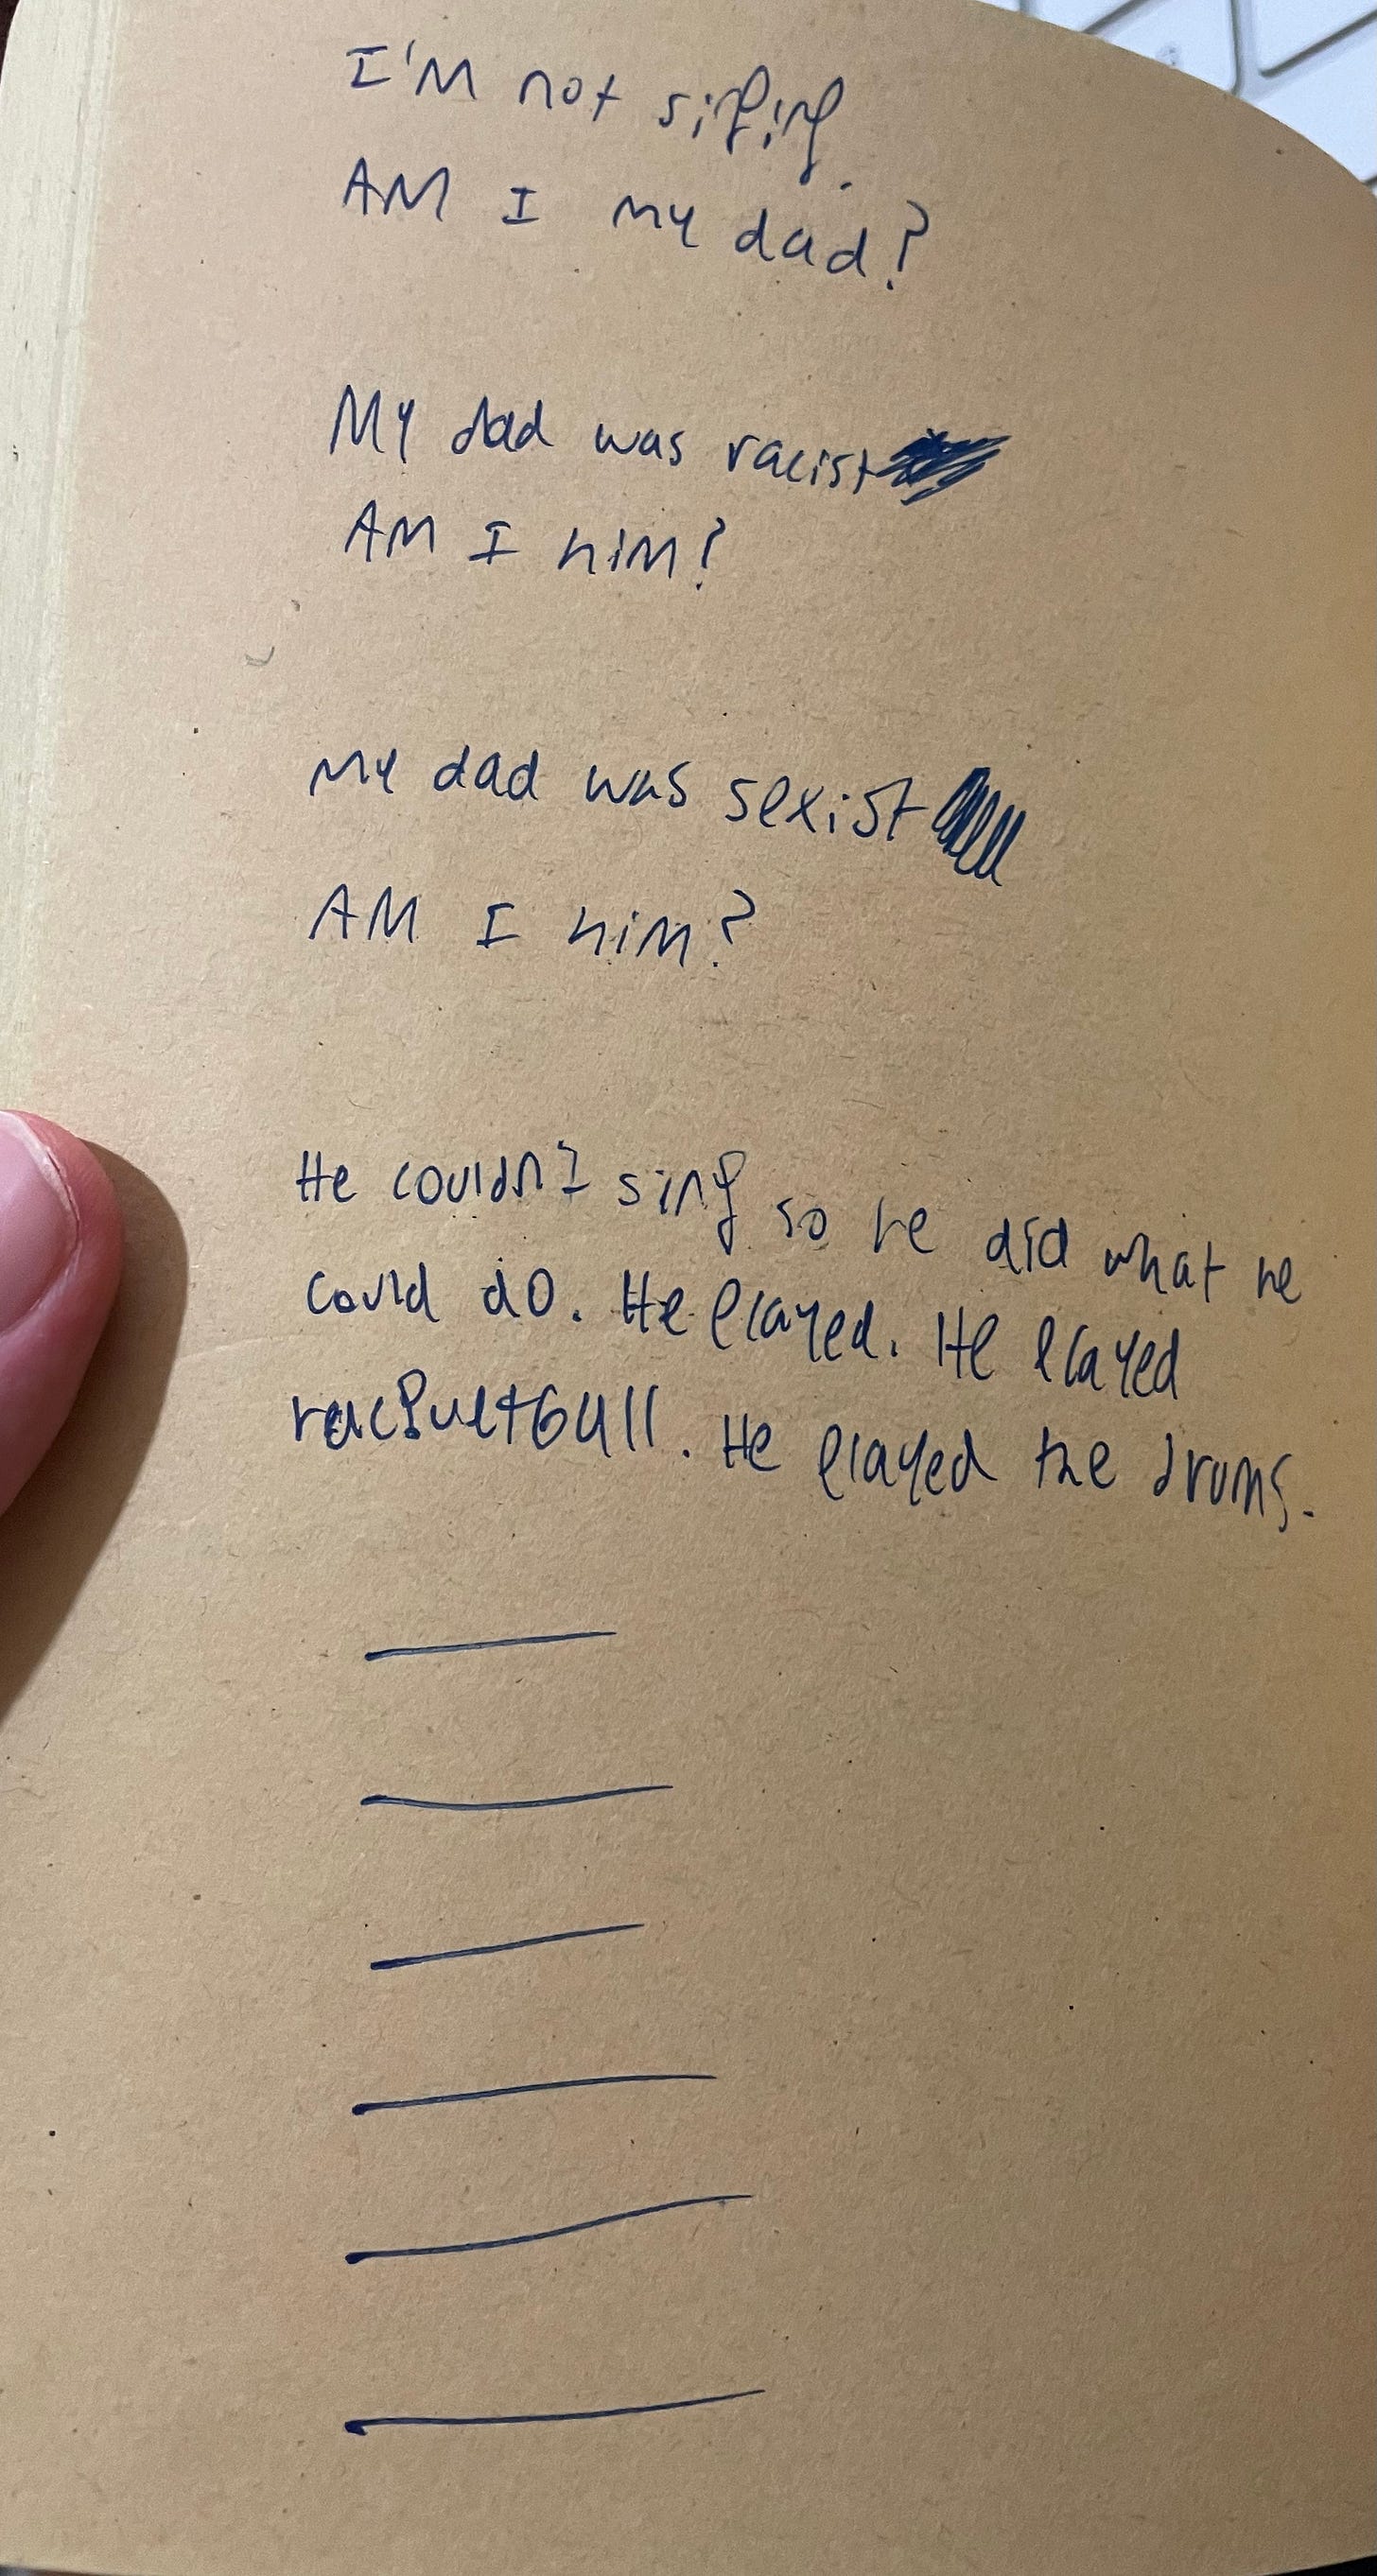 I'M not singing.
AM I my dad?
My dad was racist
AM I him?
my dad was sexist
AM I him?
He couldn't sing so he did what he
could do. He played. He played
racquetball. He played the drums.